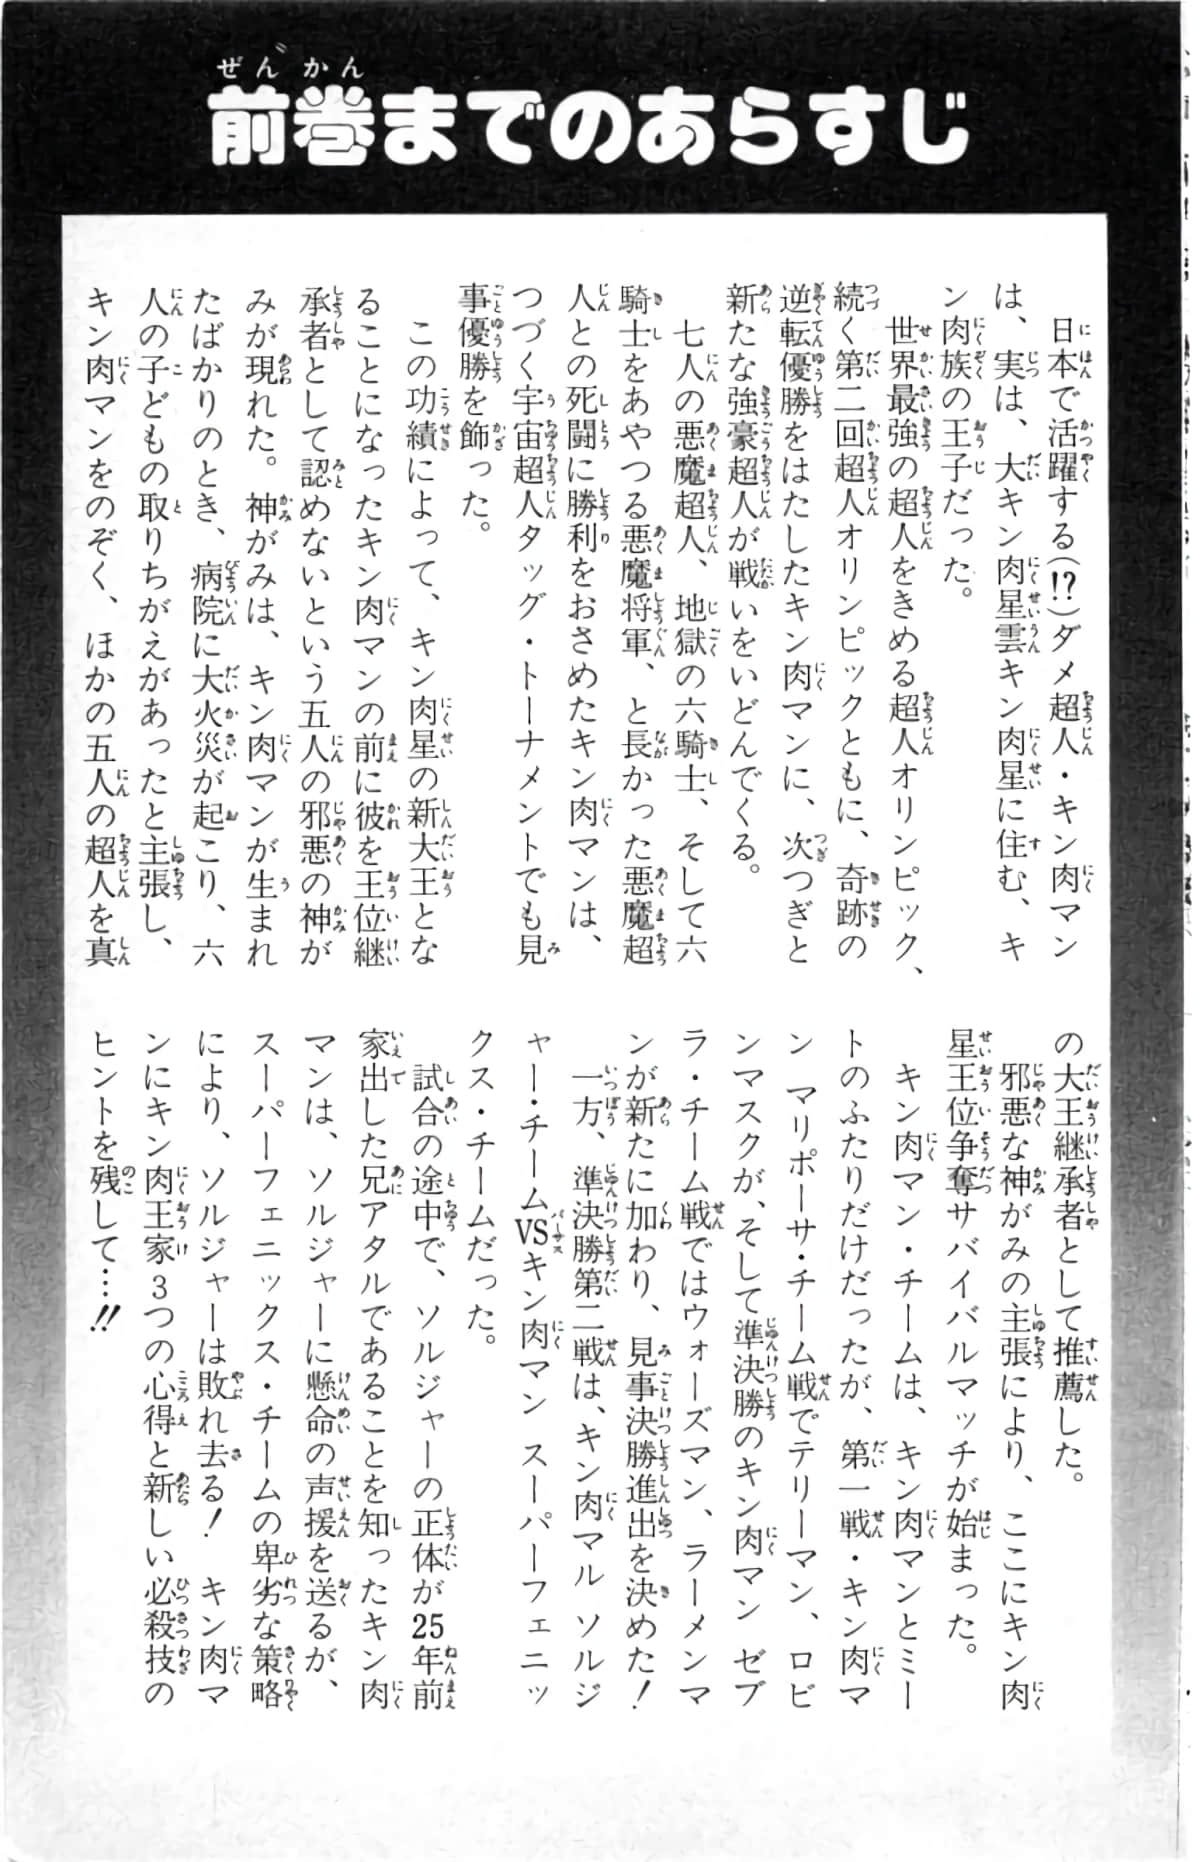 前巻までのあらすじ
日本で活躍する(!?)ダメ超人・キン肉マン
は、実は、大キン肉星雲キン肉星に住む、キ
ン肉族の王子だった。
世界最強の超人をきめる超人オリンピック、
続く第二回超人オリンピックともに、奇跡の
逆転優勝をはたしたキン肉マンに、次つぎと
新たな強豪超人が戦いをいどんでくる。
七人の悪魔超人、地獄の六騎士、そして六
騎士をあやつる悪魔将軍、と長かった悪魔超
人との死闘に勝利をおさめたキン肉マンは、
つづく宇宙超人タッグ・トーナメントでも見
事優勝を飾った。
この功績によって、キン肉星の新大王とな
ることになったキン肉マンの前に彼を王位継
承者として認めないという五人の邪悪の神が
みが現れた。神がみは、キン肉マンが生まれ
たばかりのとき、病院に大火災が起こり、六
人の子どもの取りちがえがあったと主張し、
キン肉マンをのぞく、ほかの五人の超人を真
の大王継承者として推薦した。
邪悪な神がみの主張により、ここにキン肉
星王位争奪サバイバルマッチが始まった。
キン肉マン・チームは、キン肉マンとミー
トのふたりだけだったが、第一戦・キン肉マ
ン マリポーサ・チーム戦でテリーマン、ロビ
ンマスクが、そして準決勝のキン肉マン ゼブ
ラ・チーム戦ではウォーズマン、ラーメンマ
ンが新たに加わり、見事決勝進出を決めた!
一方、準決勝第二戦は、キン肉マルソルジ
ャー・チームVSキン肉マン スーパーフェニッ
クス・チームだった。
試合の途中で、ソルジャーの正体が25年前
家出した兄アタルであることを知ったキン肉
マンは、ソルジャーに懸命の声援を送るが、
スーパーフェニックス・チームの卑劣な策略
により、ソルジャーは敗れ去る! キン肉マ
ンにキン肉王家3つの心得と新しい必殺技の
ヒントを残して…!!